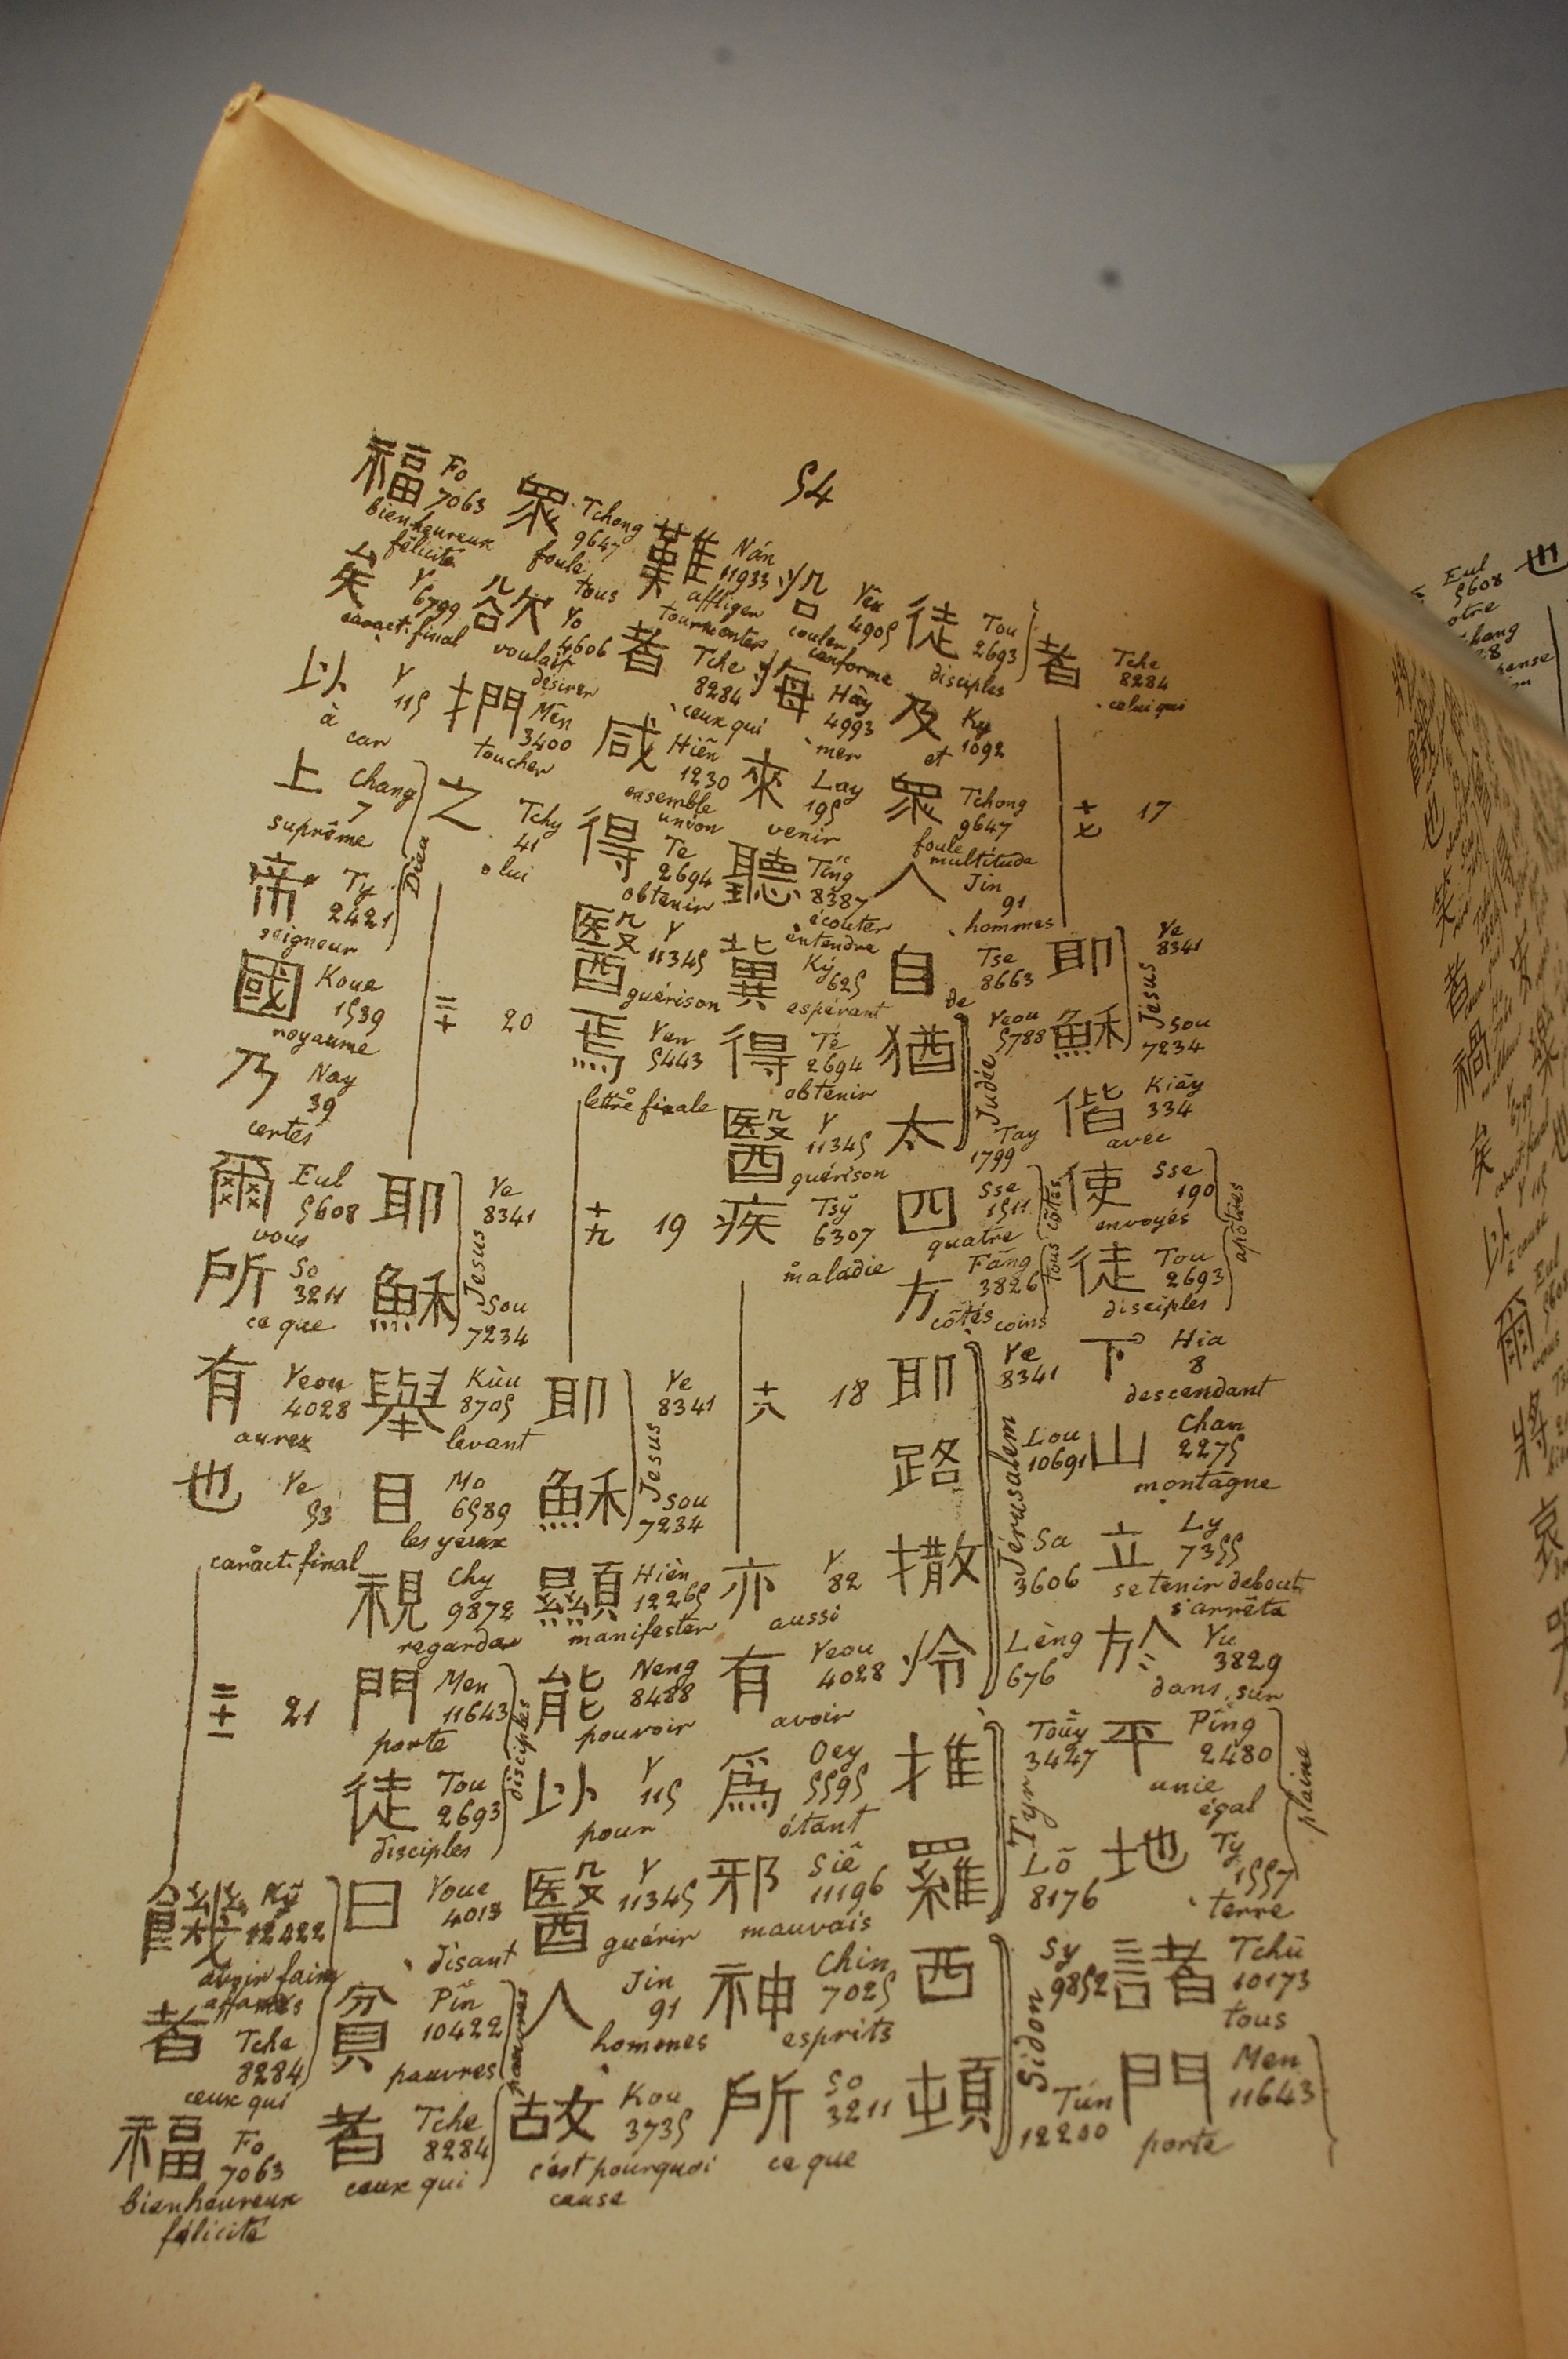 54
者 Tche 8284 celui qui
十七 17
耶 Ye 8341
穌 Sou 7234
Jesus
偕 Kiāy 334 avec
使 Sse 190 envoyés
徒 Tou 2693 disciples
apôtres
下 Hia 8 descendant
山 Chan 2275 montagne
立 Ly 7355 se tenir debout s'arrêta
於 Yu 3829 dans, sur
平 Pîng 2480 unie égal
地 Ty 1557 terre
plaine
諸 Tchū 10173 tous
門 Men 11643 porte
徒 Tou 2693 disciples
及 Ky 1092 et
眾 Tchong 9647 foule multitude
人 Jin 91 hommes
自 Tse 8663 de
猶 Yeou 5788
太 Tay 1799
Judée
四 Sse 1511 quatre
方 Fāng 3826 côtés coins
tous côtés
耶 Ye 8341
路 Lou 10691
撒 Sa 3606
冷 Lèng 676
Jérusalem
推 Toūy 3427
羅 Lō 8176
Tyr
西 Sy 9852
頓 Tún 12200
Sidon
沿 Yên 4905 couler conforme
海 Hày 4993 mer
來 Lay 195 venir
聽 Tīng 8387 écouter entendre
冀 Ký 625 espérant
得 Té 2694 obtenir
醫 Y 11345 guérison
疾 Tsy 6307 maladie
十八 18
亦 Y 82 aussi
有 Yeou 4028 avoir
為 Oey 5595 étant
邪 Siê 11196 mauvais
神 Chin 7025 esprits
所 So 3211 ce que
難 Nán 11933 affliger tourmenter
者 Tche 8284 ceux qui
咸 Hiên 1230 ensemble union
得 Te 2694 obtenir
醫 Y 11345 guérison
焉 Yen 5443 lettre finale
十九 19
耶 Ye 8341
穌 Sou 7234
Jesus
顯 Hièn 12265 manifester
能 Neng 8488 pouvoir
以 Y 115 pour
醫 Y 11345 guérir
人 Jin 91 hommes
故 Kou 3735 c'est pourquoi cause
眾 Tchong 9647 foule tous
欲 Yo 4606 voulait désirer
捫 Mên 3400 toucher
之 Tchy 41 o lui
二十 20
耶 Ye 8341
穌 Sou 7234
Jesus
舉 Kùu 8705 levant
目 Mo 6589 les yeux
視 Chy 9872 regarda
門 Men 11643 porte
徒 Tou 2693 disciples
disciples
曰 Youe 4013 disant
貧 Pîn 10422 pauvres
者 Tche 8284 ceux qui
pauvres
福 Fo 7063 bienheureux félicité
矣 Y 6799 caract. final
以 Y 115 à car
上 Chang 7 suprême
帝 Ty 2421 seigneur
Dieu
國 Koue 1539 royaume
乃 Nay 39 certes
爾 Eul 5608 vous
所 So 3211 ce que
有 Yeou 4028 aurez
也 Ye 53 caract. final
二十一 21
饑 Ky 12422 avoir faim affamés
者 Tche 8284 ceux qui
福 Fo 7063 bienheureux félicité
Eul 5608
也